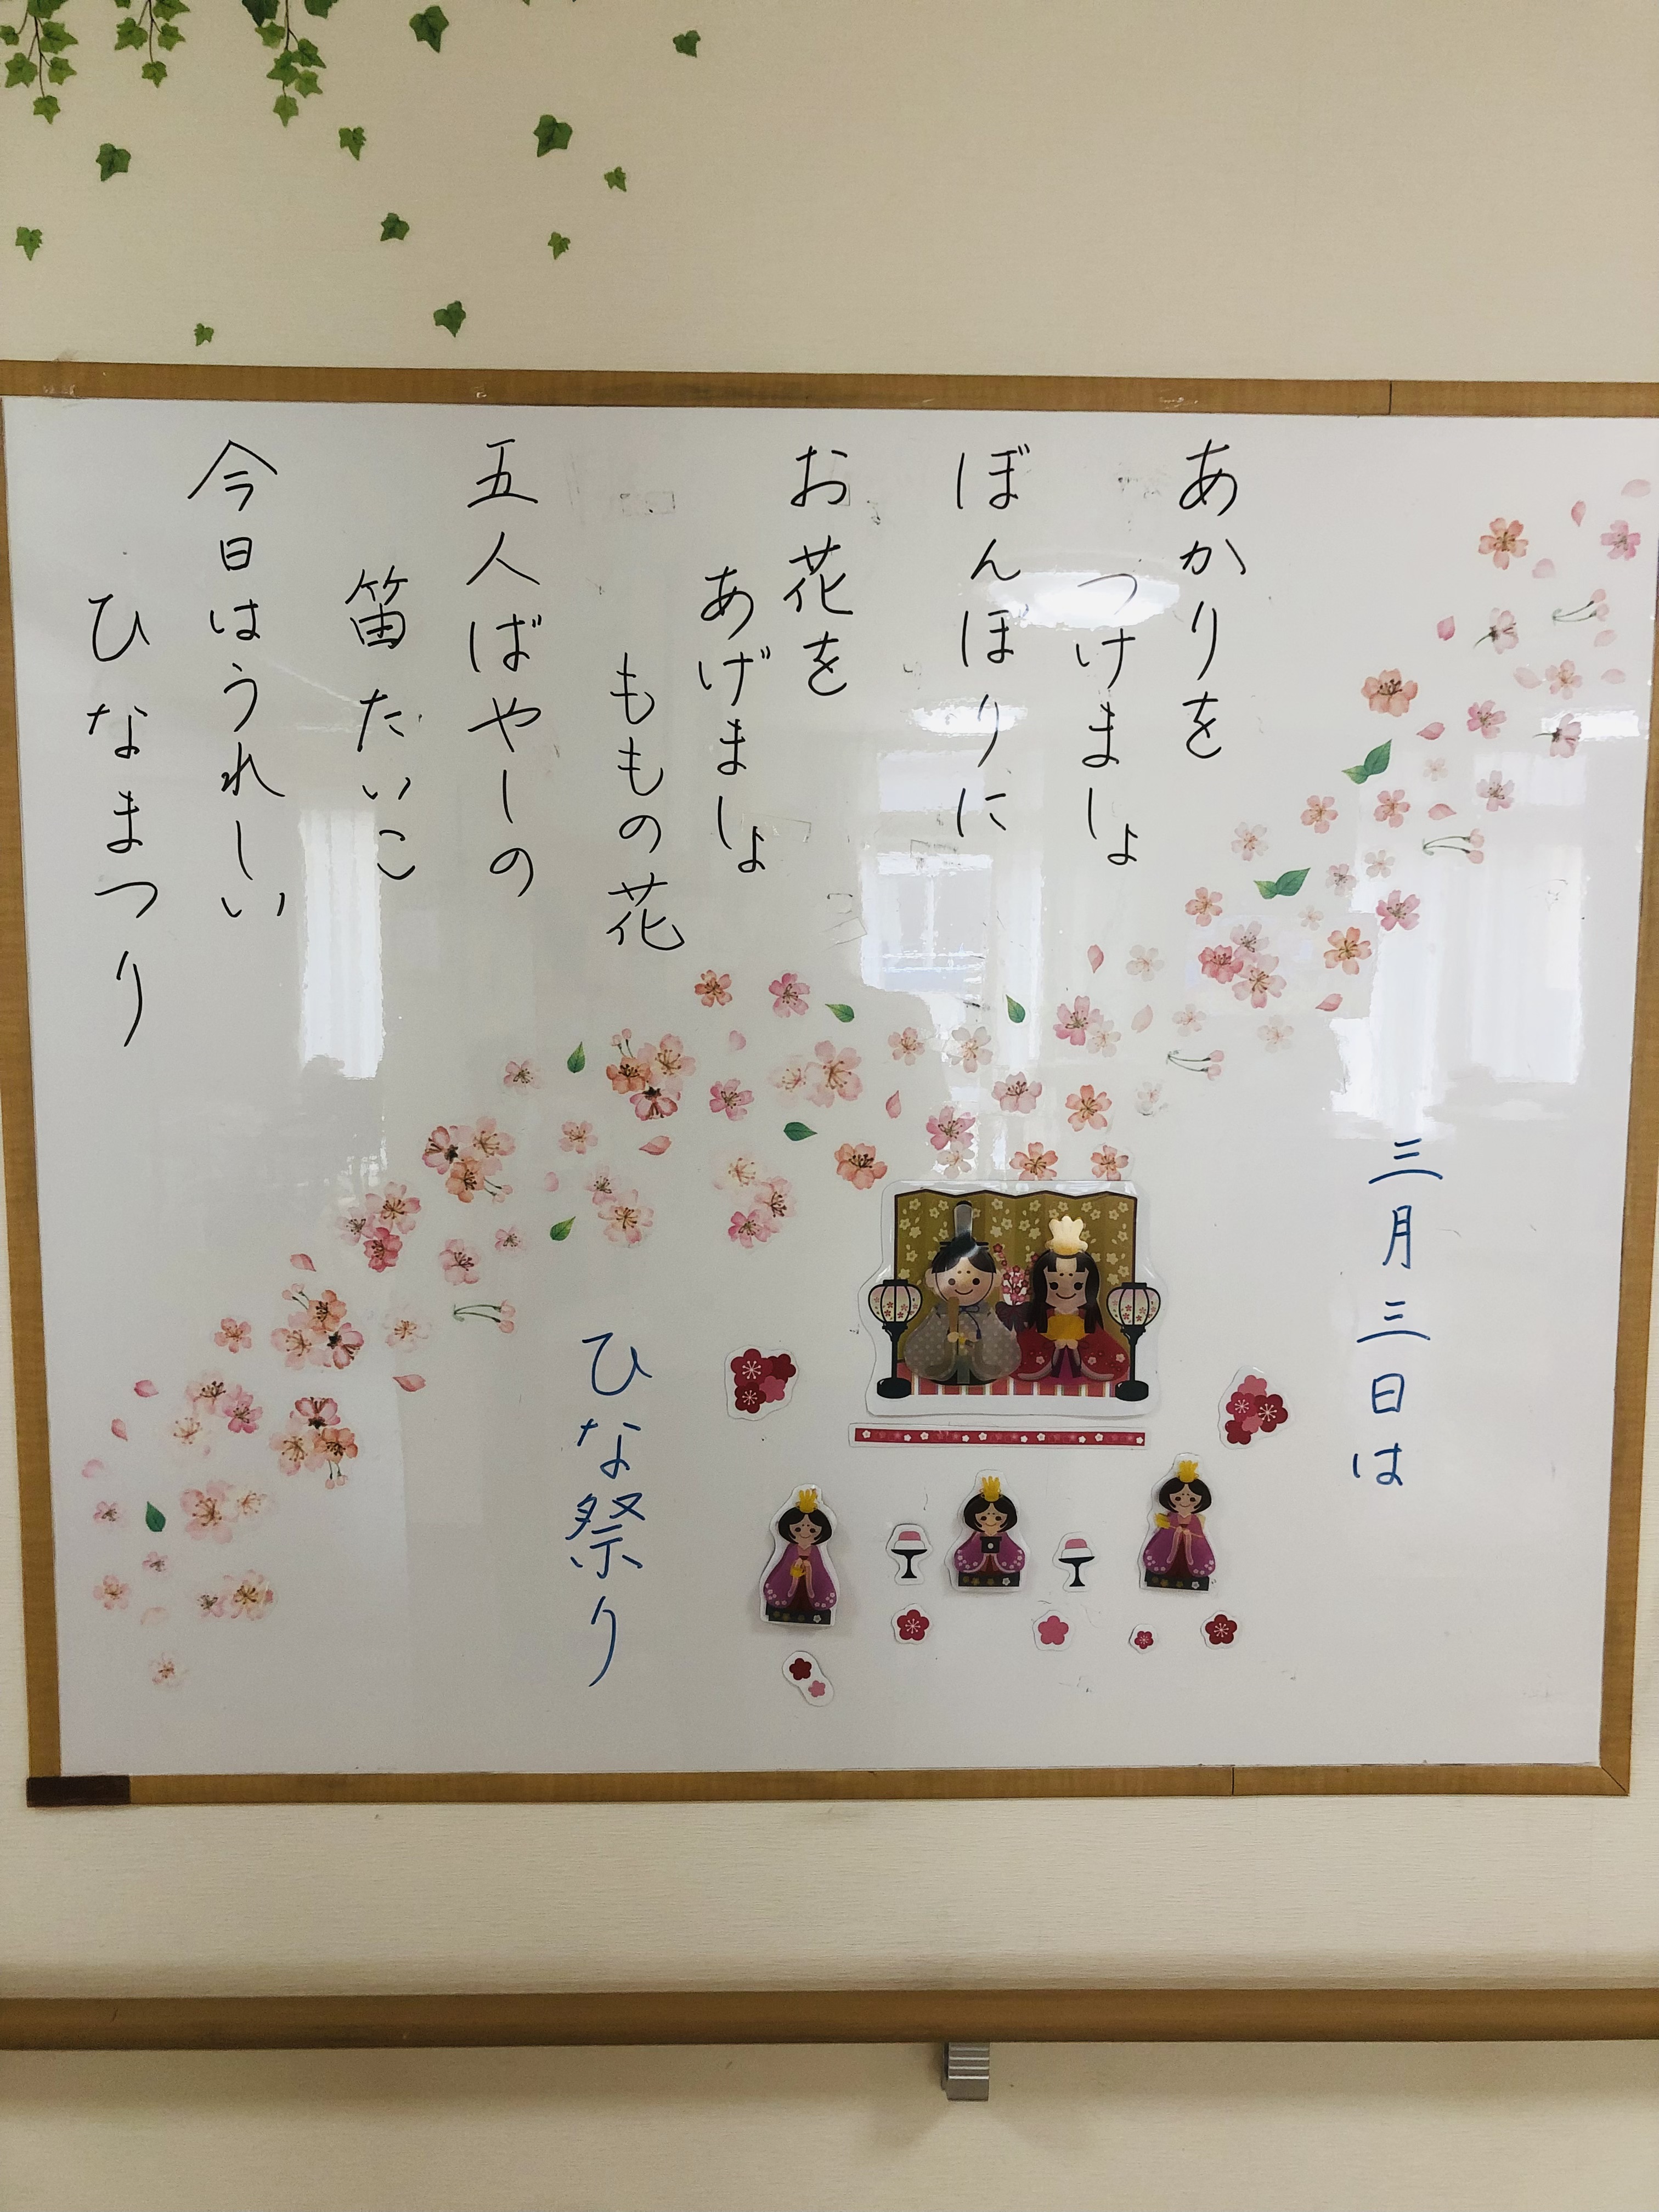 あかりを
つけましょ
ぼんぼりに
お花を
あげましょ
ももの花
五人ばやしの
笛たいこ
今日はうれしい
ひなまつり
三月三日は
ひな祭り